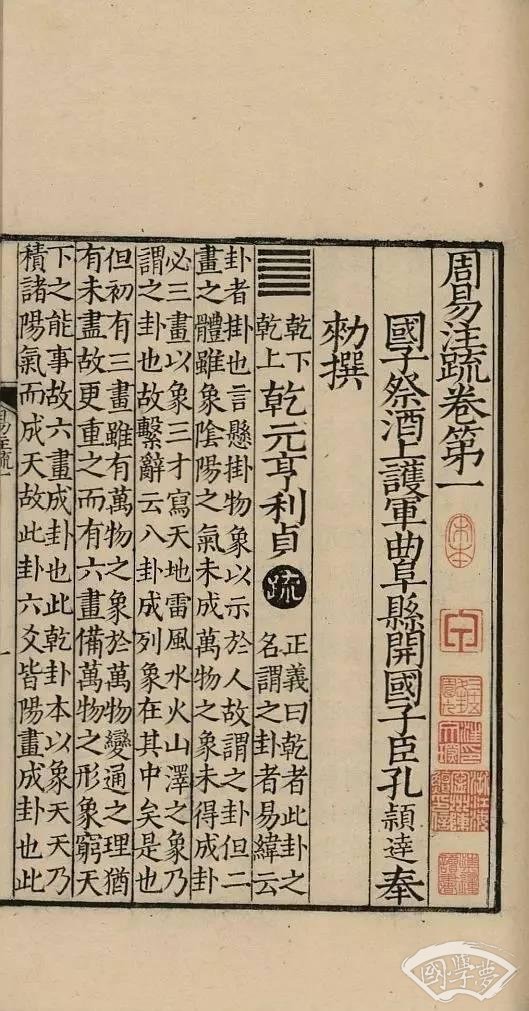 周易注疏卷第一
國子祭酒上護軍曲阜縣開國子臣孔穎達奉
勑撰
䷀ 乾下乾上 乾元亨利貞 疏 正義曰乾者此卦之
名謂之卦者易緯云
卦者掛也言懸掛物象以示於人故謂之卦但二
畫之體雖象陰陽之氣未成萬物之象未得成卦
必三畫以象三才寫天地雷風水火山澤之象乃
謂之卦也故繫辭云八卦成列象在其中矣是也
但初有三畫雖有萬物之象於萬物變通之理猶
有未盡故更重之而有六畫備萬物之形象窮天
下之能事故六畫成卦也此乾卦本以象天天乃
積諸陽氣而成天故此卦六爻皆陽畫成卦也此
一
宋本
國學夢